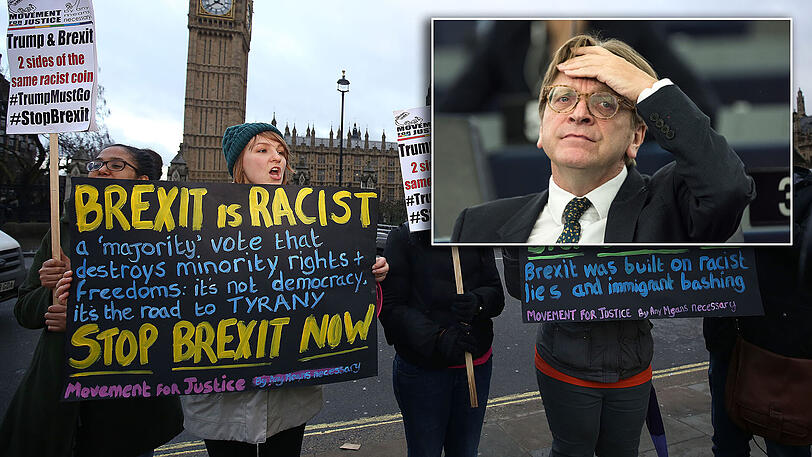 MOVEMENT
FOR JUSTICE By any means necessary
Trump & Brexit
2 sides of the
same racist coin
#TrumpMustGo
#StopBrexit
BREXIT is RACIST
a 'majority' vote that
destroys minority rights +
freedoms: it's not democracy,
it's the road to TYRANY
STOP BREXIT NOW
Movement for Justice By Any Means necessary
MOVEMENT
FOR JUSTICE
Trum
2 sid
same
#Tru
#St
Brexit was built on racist
lies and immigrant bashing
MOVEMENT FOR JUSTICE By Any Means necessary
3